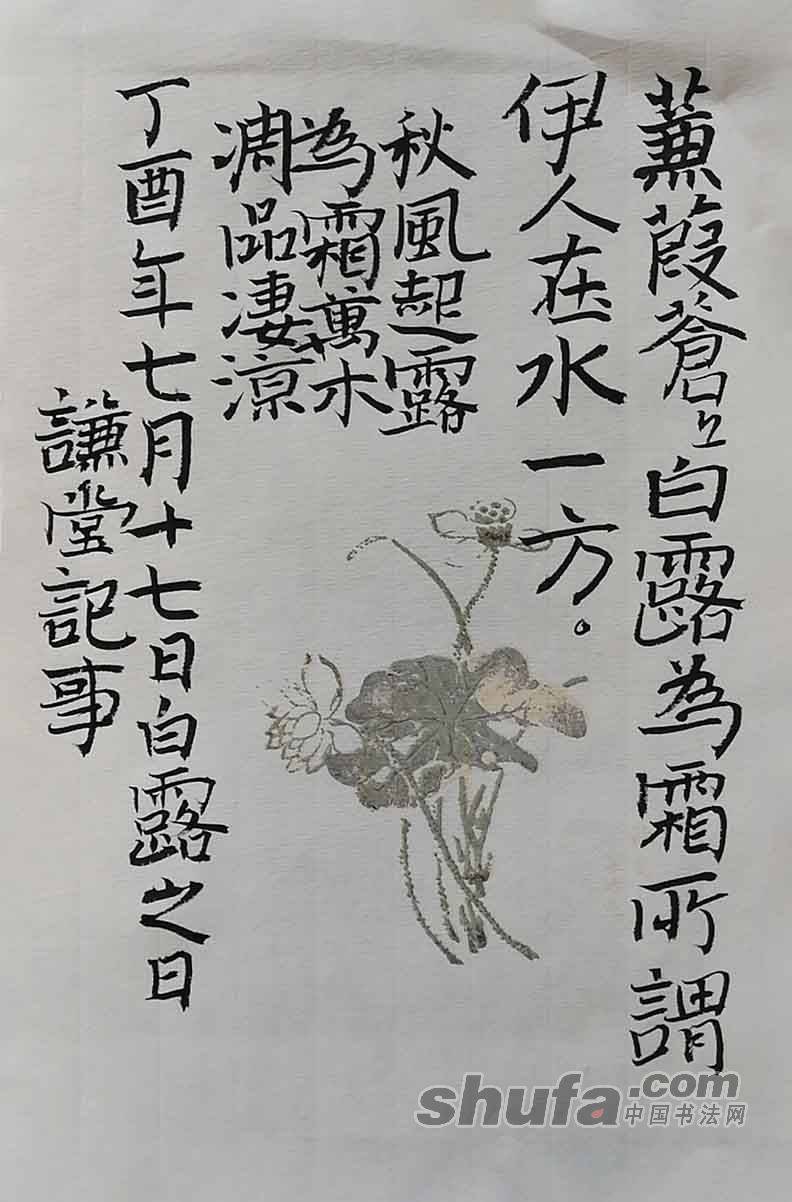 蒹葭蒼々白露為霜所謂
伊人在水一方。
秋風起露
為霜萬木
凋品淒涼
丁酉年七月十七日白露之日
謙堂記事
shufa.com
中国书法网